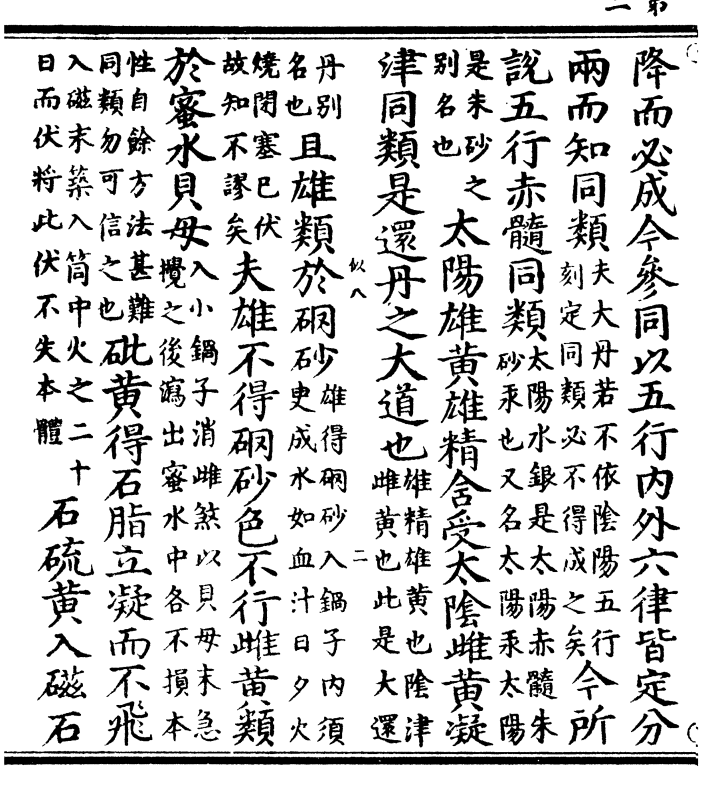 降而必成今參同以五行內外六律皆定分
兩而知同類
夫大丹若不依陰陽五行
刻定同類必不得成之矣
今所
說五行赤髓同類
太陽水銀是太陽赤髓朱
砂汞也又名太陽汞太陽
是朱砂之
別名也
太陽雄黃雄精含受太陰雌黃凝
津同類是還丹之大道也
雄精雄黃也陰津
雌黃也此是大還
丹別
名也
且雄類於硇砂
雄得硇砂入鍋子內須
史成水如血汁日夕火
燒閉塞已伏
故知不謬矣
夫雄不得硇砂色不行雌黃類
於蜜水貝母
入小鍋子消雌煞以貝母末急
攪之後瀉出蜜水中各不損本
性自餘方法甚難
同類勿可信之也
砒黃得石脂立凝而不飛
入磁末築入筒中火之二十
日而伏將此伏不失本體
石硫黃入磁石